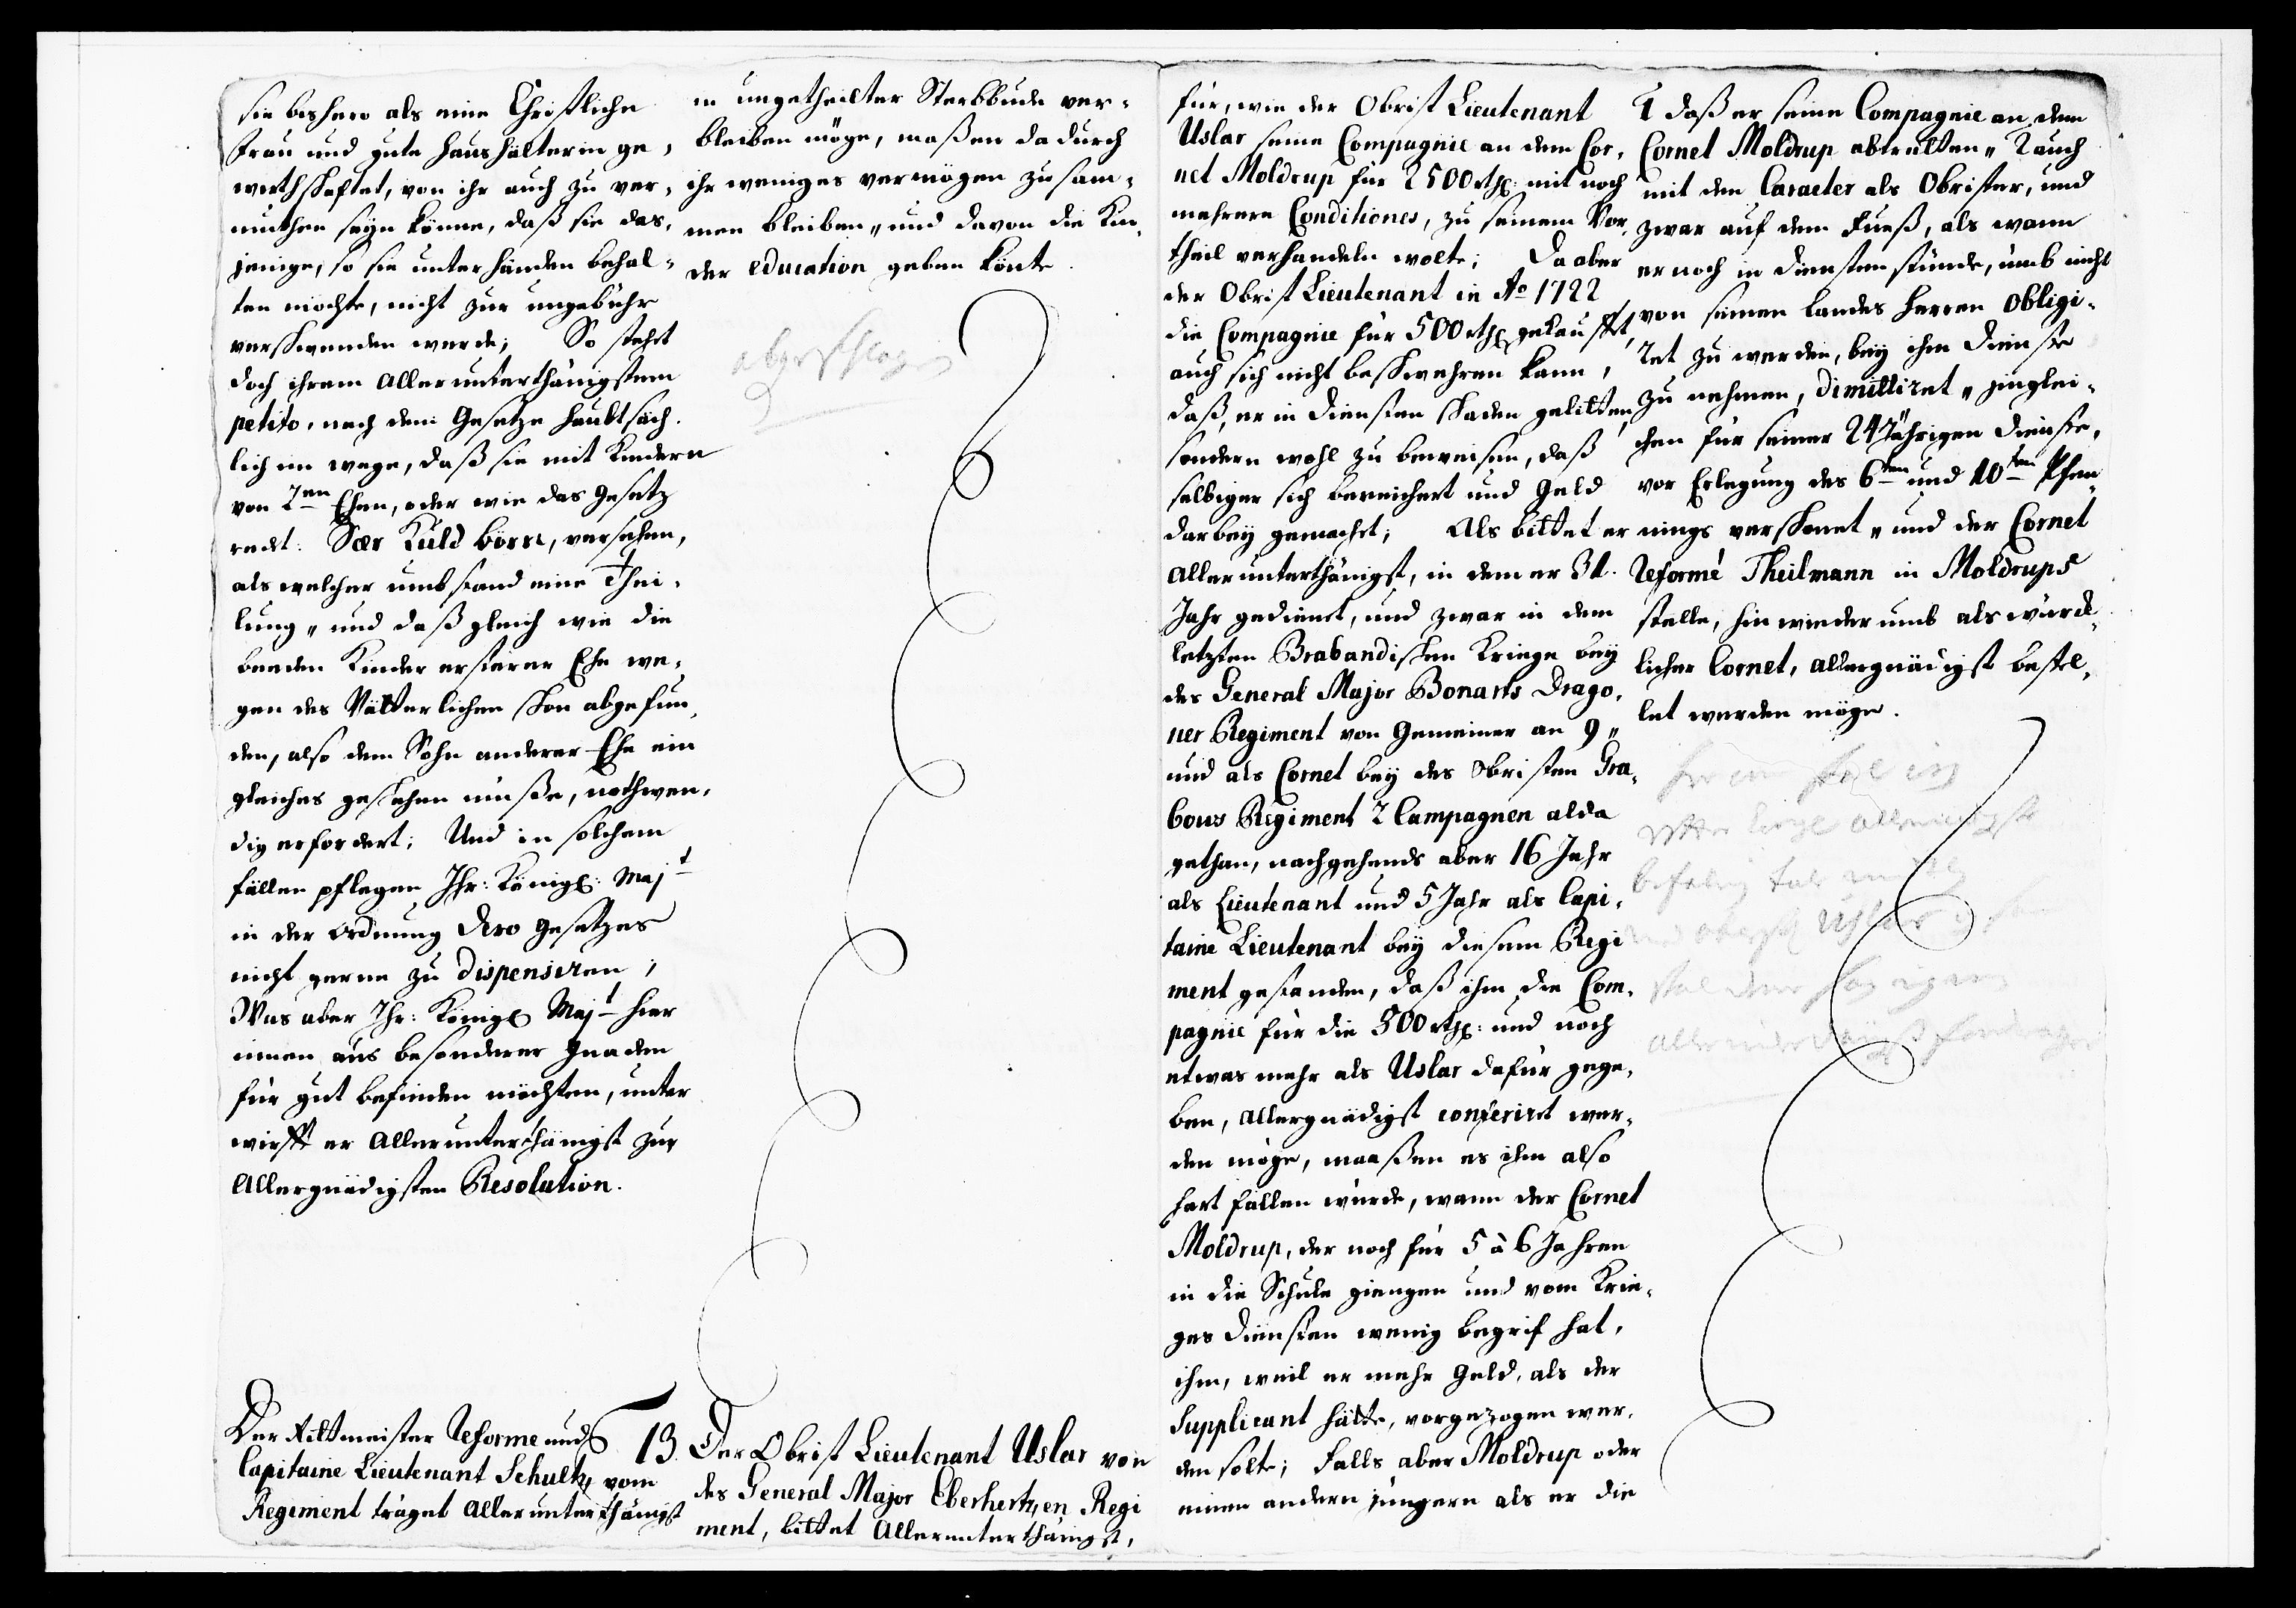 sie bishero als eine Christliche
frau und gute haushälterin ge,
wirthschafftet, von ihr auch zu ver,
muthen seyn könne, daß sie das,
jenige, so sie unterhänden behal,
ten möchte, nicht zur ungebühr
verschwenden werde; So stehet
doch ihrem allerunterthänigstem
petito, nach dem Gesetze haubtsäch,
lich im wege, daß sie mit Kindern
von 2en Ehen, oder wie das gesetz
redet: Sær Kuld börn, versehen,
als welcher umbstand eine Thei,
lung, und daß gleich wie die
beeden Kinder ersterer Ehe we,
gen des Vätterlichen schon abgefun,
den, also dem Sohn anderer Ehe ein
gleiches geschehen müße, nothwen,
dig erfordert; Und in solchem
fällen pflegen Ihr: Königl: Majt
in der ordnung Dero gesetzes
nicht gerne zu dispensiren;
Was aber Ihr: Königl Majt hier
innen aus besonderer gnaden
für gut befinden möchten, unter
wirfft er allerunterthänigst zur
allergnädigsten Resolution.
in ungetheilter Sterbbude ver,
bleiben möge, maßen dadurch
ihr weniges vermögen zusam,
men bleiben, und davon die Kin,
der education geben könte.
abgeschlagen
Der Rittmeister Reforme und
Capitaine Lieutenant Schultz vom
Regiment träget allerunterthänigst
13. Der Obrist Lieutenant Uslar von
des General Major Eberhertzen Regi
ment, bittet allerunterthänigst,
für, wie der Obrist Lieutenant
Uslar seine Compagnie an dem Cor,
net Moldrup für 2500 rthl: mit noch
mehrern Conditiones, zu seinem Vor,
theil verhandeln wolte; Da aber
der Obrist Lieutenant in Ao 1722
die Compagnie für 500 rthl gekaufft,
auch sich nicht beschwehren kann,
daß, er in diensten schaden gelitten,
sondern wohl zu beweisen, daß
selbiger sich bereichert und geld
darbey gemacht; Als bittet er
allerunterthänigst, in dem er 31.
Jahr gedienet, und zwar in dem
letzten Brabandischen Kriege bey
des General Major Bonarts Drago,
ner Regiment von Gemeiner an 9,
und als Cornet bey des Obristen Gra,
bous Regiment 2 Campagnen alda
gethan, nachgehends aber 16 Jahr
als Lieutenant und 5 Jahr als Capi,
taine Lieutenant bey diesem Regi
ment gestanden, daß ihm die Com,
pagnie für die 500 rthl: und noch
etwas mehr als Uslar dafür gege,
ben, allergnädigst conferiret wer,
den möge, maaßen es ihm also
hart fallen würde, wann der Cornet
Moldrup, der noch für 5 à 6 Jahren
in die Schule gienge und vom Krie,
ges diensten wenig begrif hat,
ihm, weil er mehr geld, als der
Supplicant hätte, vorgezogen wer,
den solte; Falls aber Moldrup oder
einem andern jüngern als er die
1 daß er seine Compagnie an dem
Cornet Moldrup abtretten, 2 auch
mit dem Caracter als Obrister, und
zwar auf dem Fueß, als wann
er noch in diensten stünde, umb nicht
von seinen landes herren obligi,
ret zu werden, bey ihm dienste
zu nehmen, dimittiret, jnglei,
chen für seiner 24 Jährigen dienste,
vor Erlegung des 6ten und 10ten Pfen,
nings verschonet, und der Cornet
Reformé Theilmann in Moldrups
stelle, hinwiederumb als würck,
licher Cornet, allergnädigst bestel,
let werden möge.